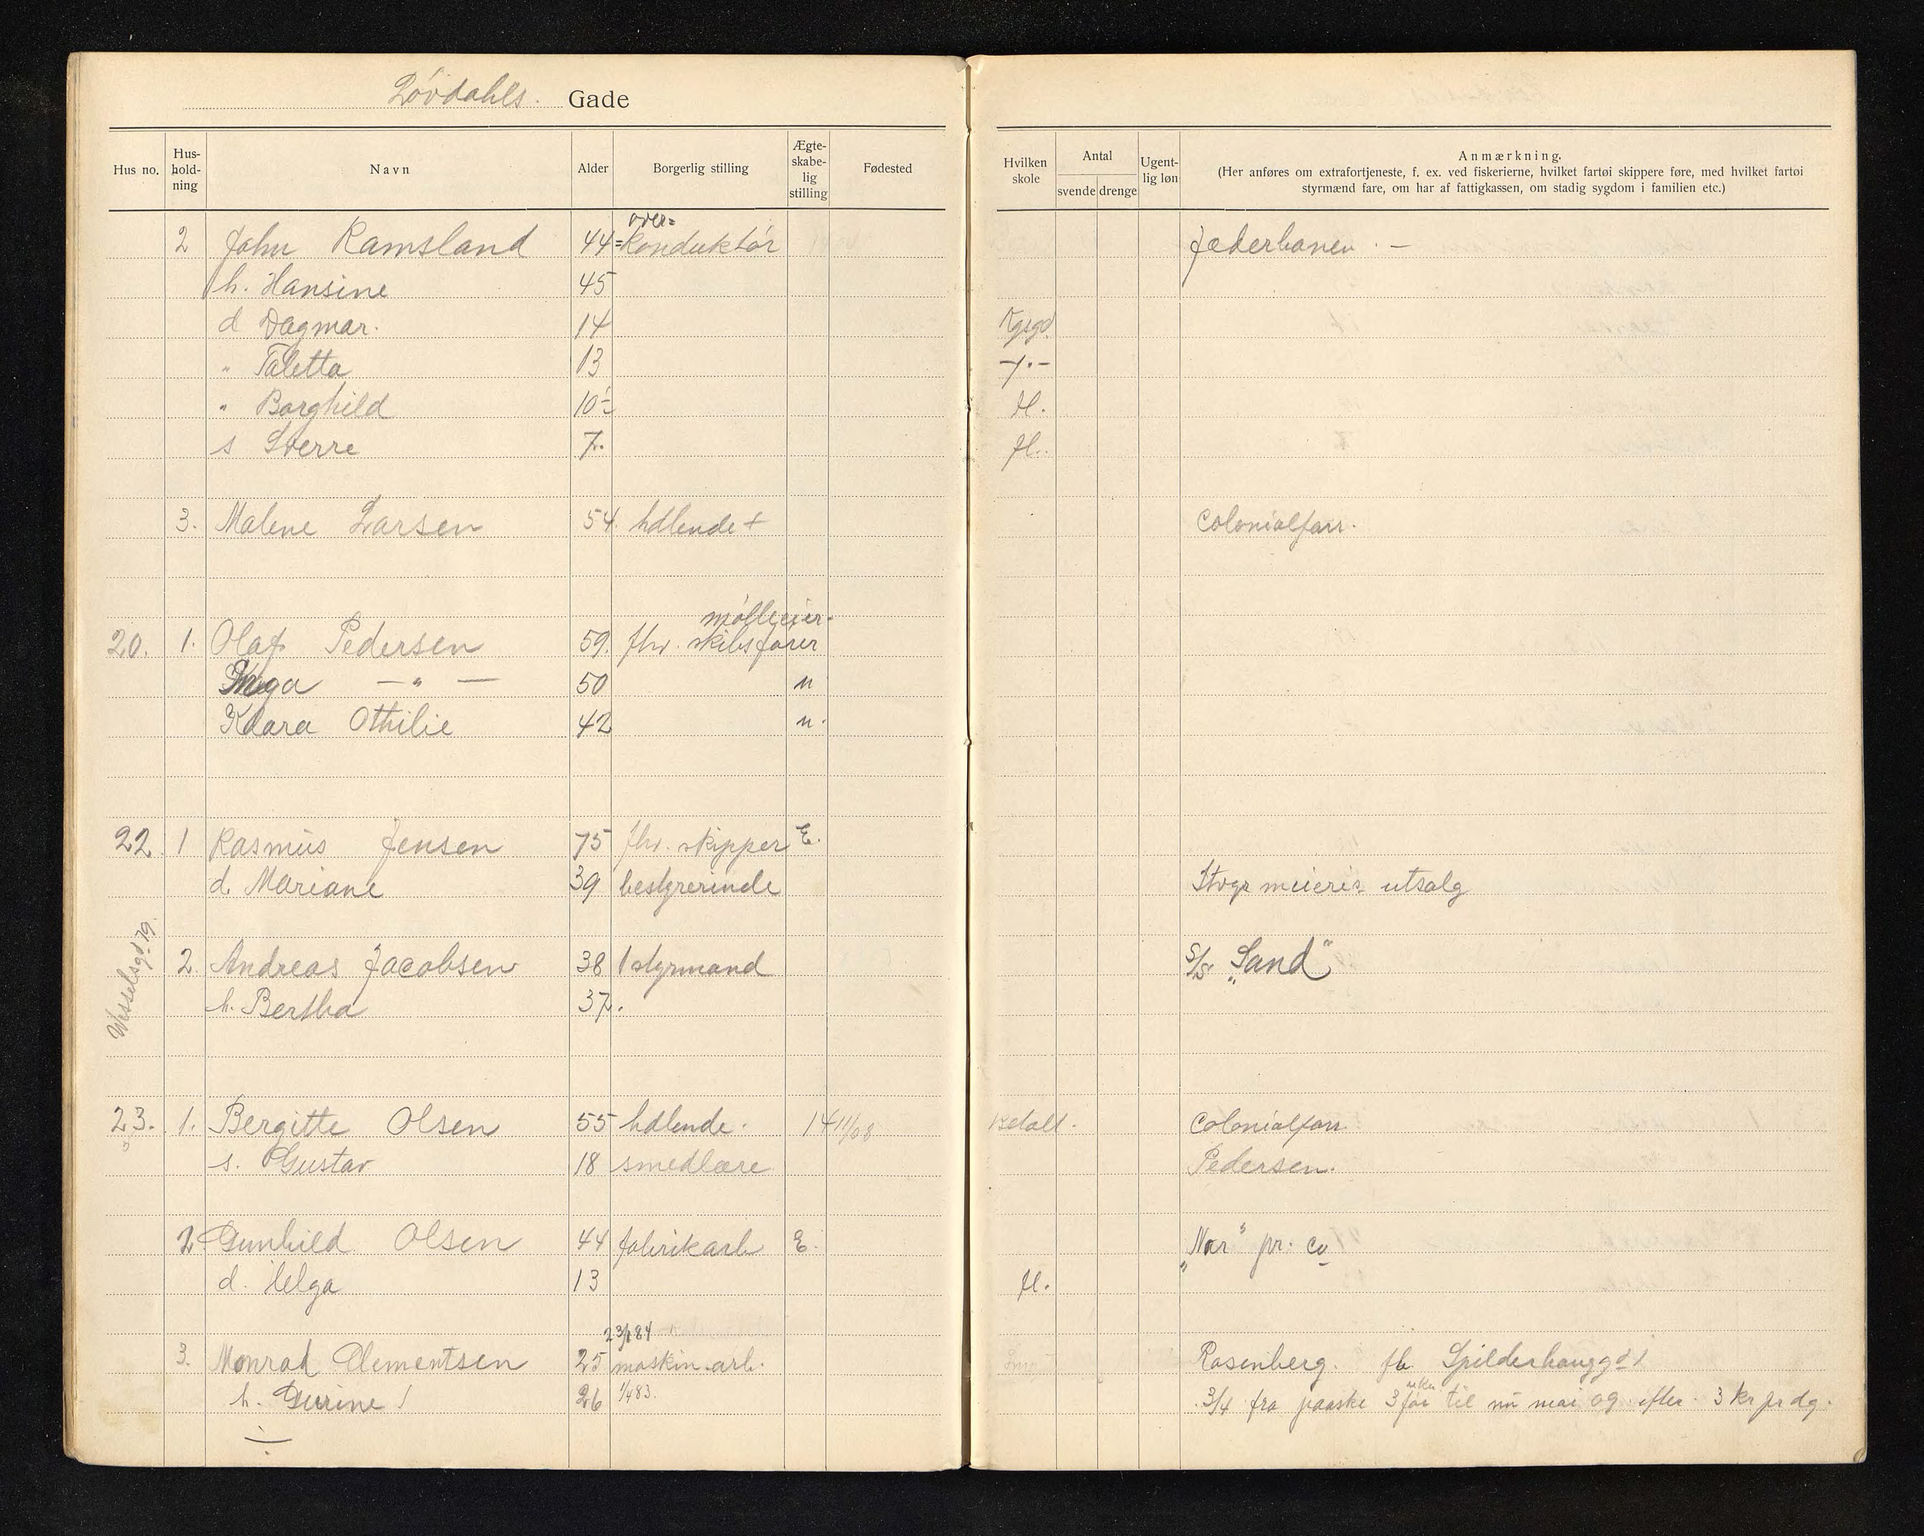 Lövdahls. Gade
Hus no. Hus-hold-ning Navn Alder Borgerlig stilling Ægte-skabe-lig stilling Fødested Hvilken skole Antal svende drenge Ugent-lig løn Anmærkning.
(Her anføres om extrafortjeneste, f. ex. ved fiskerierne, hvilket fartøi skippere føre, med hvilket fartøi
styrmænd fare, om har af fattigkassen, om stadig sygdom i familien etc.)
over=
2 John Ramsland 44 = konduktör Jæderbanen. —
h. Hansine 45
d Dagmar. 14 Kgsgd.
" Taletta 13 —"—
" Borghild 10 H.
s Sverre 7. H.
3. Malene Larsen 54. hdlende + Colonialfarr.
mölleeier.
20. 1. Olaf Pedersen 59. fhv. skibsförer
Inga —"— 50 u
Klara Othilie 42 u.
22. 1 Rasmus Jensen 75 fhv. skipper E.
d. Mariane 39 bestyrerinde Stvgr meieris utsalg
Wesselsgd 79.
2. Andreas Jacobsen 38 1 styrmand S/S „Sand"
h. Bertha 37.
23. 1. Bergitte Olsen 55 hdlende. 14 11/08 Colonialfarr
s. Gustav 18 smedlære Pedersen.
2 Gunhild Olsen 44 fabrikarb E. „Nor" pr. co
d. Helga 13 H.
23/1 84
3. Monrad Clementsen 25 maskin.arb. Rosenberg. fh Spilderhauggd 1
h. Gurine 26 1/4 83. 3/4 fra paaske 3 för til nu mai og efter 3 kr pr dg.